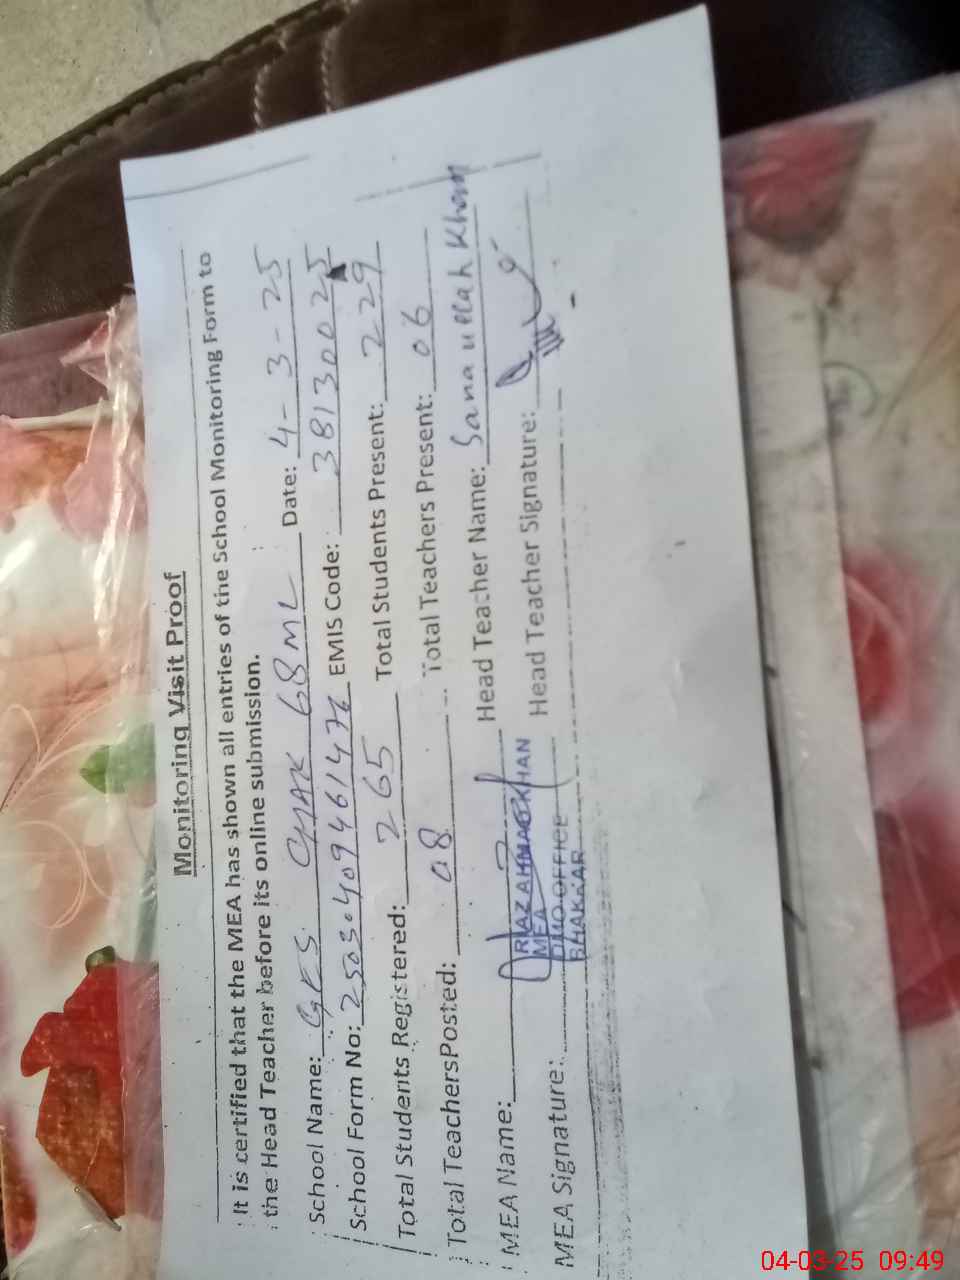 Monitoring Visit Proof
It is certified that the MEA has shown all entries of the School Monitoring Form to
the Head Teacher before its online submission.
School Name: GPES CHAK 68 ML Date: 4-3-25
School Form No: EMIS Code: 38130025
Total Students Registered: 265 Total Students Present: 229
Total TeachersPosted: 08 Total Teachers Present: 06
MEA Name: RIAZ AHMAD KHAN Head Teacher Name: Sana ullah Khan
MEA
MEA Signature: DMO OFFICE Head Teacher Signature:
BHAKKAR
04-03-25 09:49